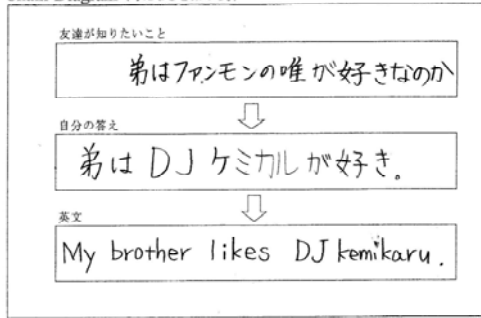 友達が知りたいこと
弟はファンモンの唯が好きなのか
自分の答え
弟はDJケミカルが好き。
英文
My brother likes DJ kemikaru.